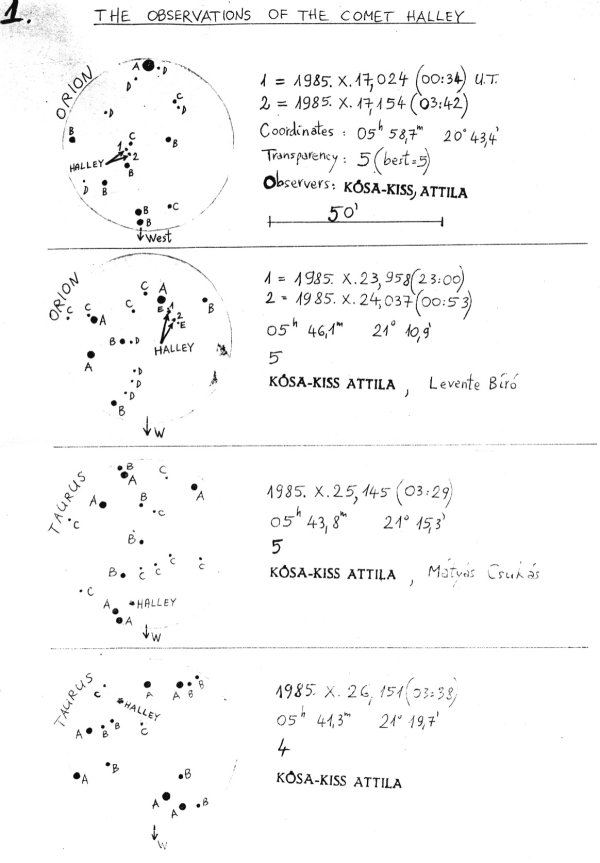 1.
THE OBSERVATIONS OF THE COMET HALLEY
ORION
A
D
D
C
D
D
B
C
B
1
2
HALLEY
B
D
B
B
C
B
West
1 = 1985. X. 17,024 (00:34) U.T.
2 = 1985. X. 17,154 (03:42)
Coordinates : 05h 58,7m 20° 43,4'
Transparency: 5 (best=5)
Observers: KÓSA-KISS, ATTILA
50'
ORION
C
A
C
C
C
C
B
A
E
1
2
E
B
D
HALLEY
A
D
D
D
B
W
1 = 1985. X. 23,958 (23:00)
2 = 1985. X. 24,037 (00:53)
05h 46,1m 21° 10,9'
5
KÓSA-KISS ATTILA , Levente Bíró
TAURUS
B
A
C
A
A
B
C
C
B
B
C
C
C
C
C
A
HALLEY
A
W
1985. X. 25,145 (03:29)
05h 43,8m 21° 15,3'
5
KÓSA-KISS ATTILA , Mátyás Csukás
TAURUS
C
A
A
B
B
HALLEY
A
B
B
C
A
B
B
A
A
B
W
1985. X. 26,151 (03:38)
05h 41,3m 21° 19,7'
4
KÓSA-KISS ATTILA